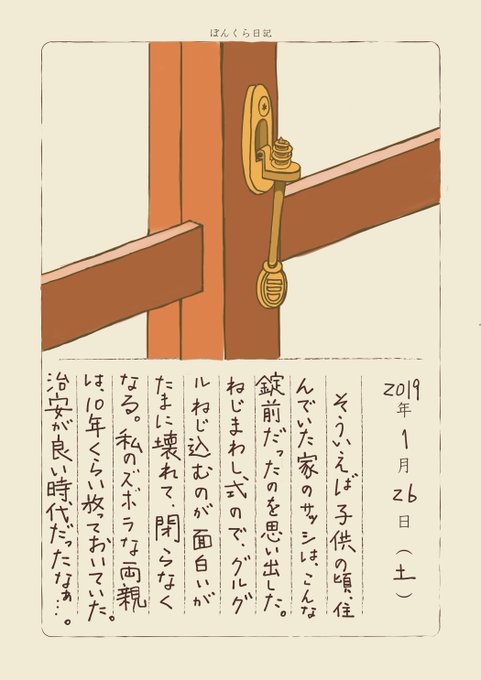 ぼんくら日記
2019年1月26日(土)
そういえば子供の頃、住
んでいた家のサッシは、こんな
錠前だったのを思い出した。
ねじまわし式ので、グルグ
ルねじ込むのが面白いが
たまに壊れて、閉らなく
なる。私のズボラな両親
は、10年くらい放っておいていた。
治安が良い時代だったなぁ…。